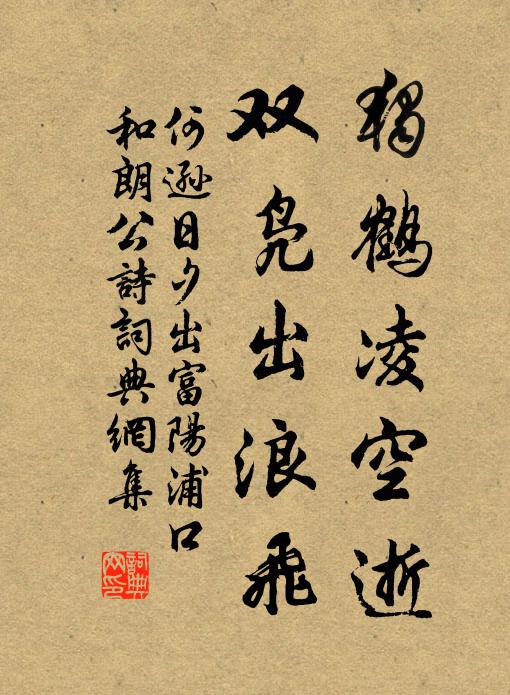 獨鶴凌空逝
双凫出浪飛
何遜日夕出富陽浦口
和朗公詩詞典網集
詞典网印